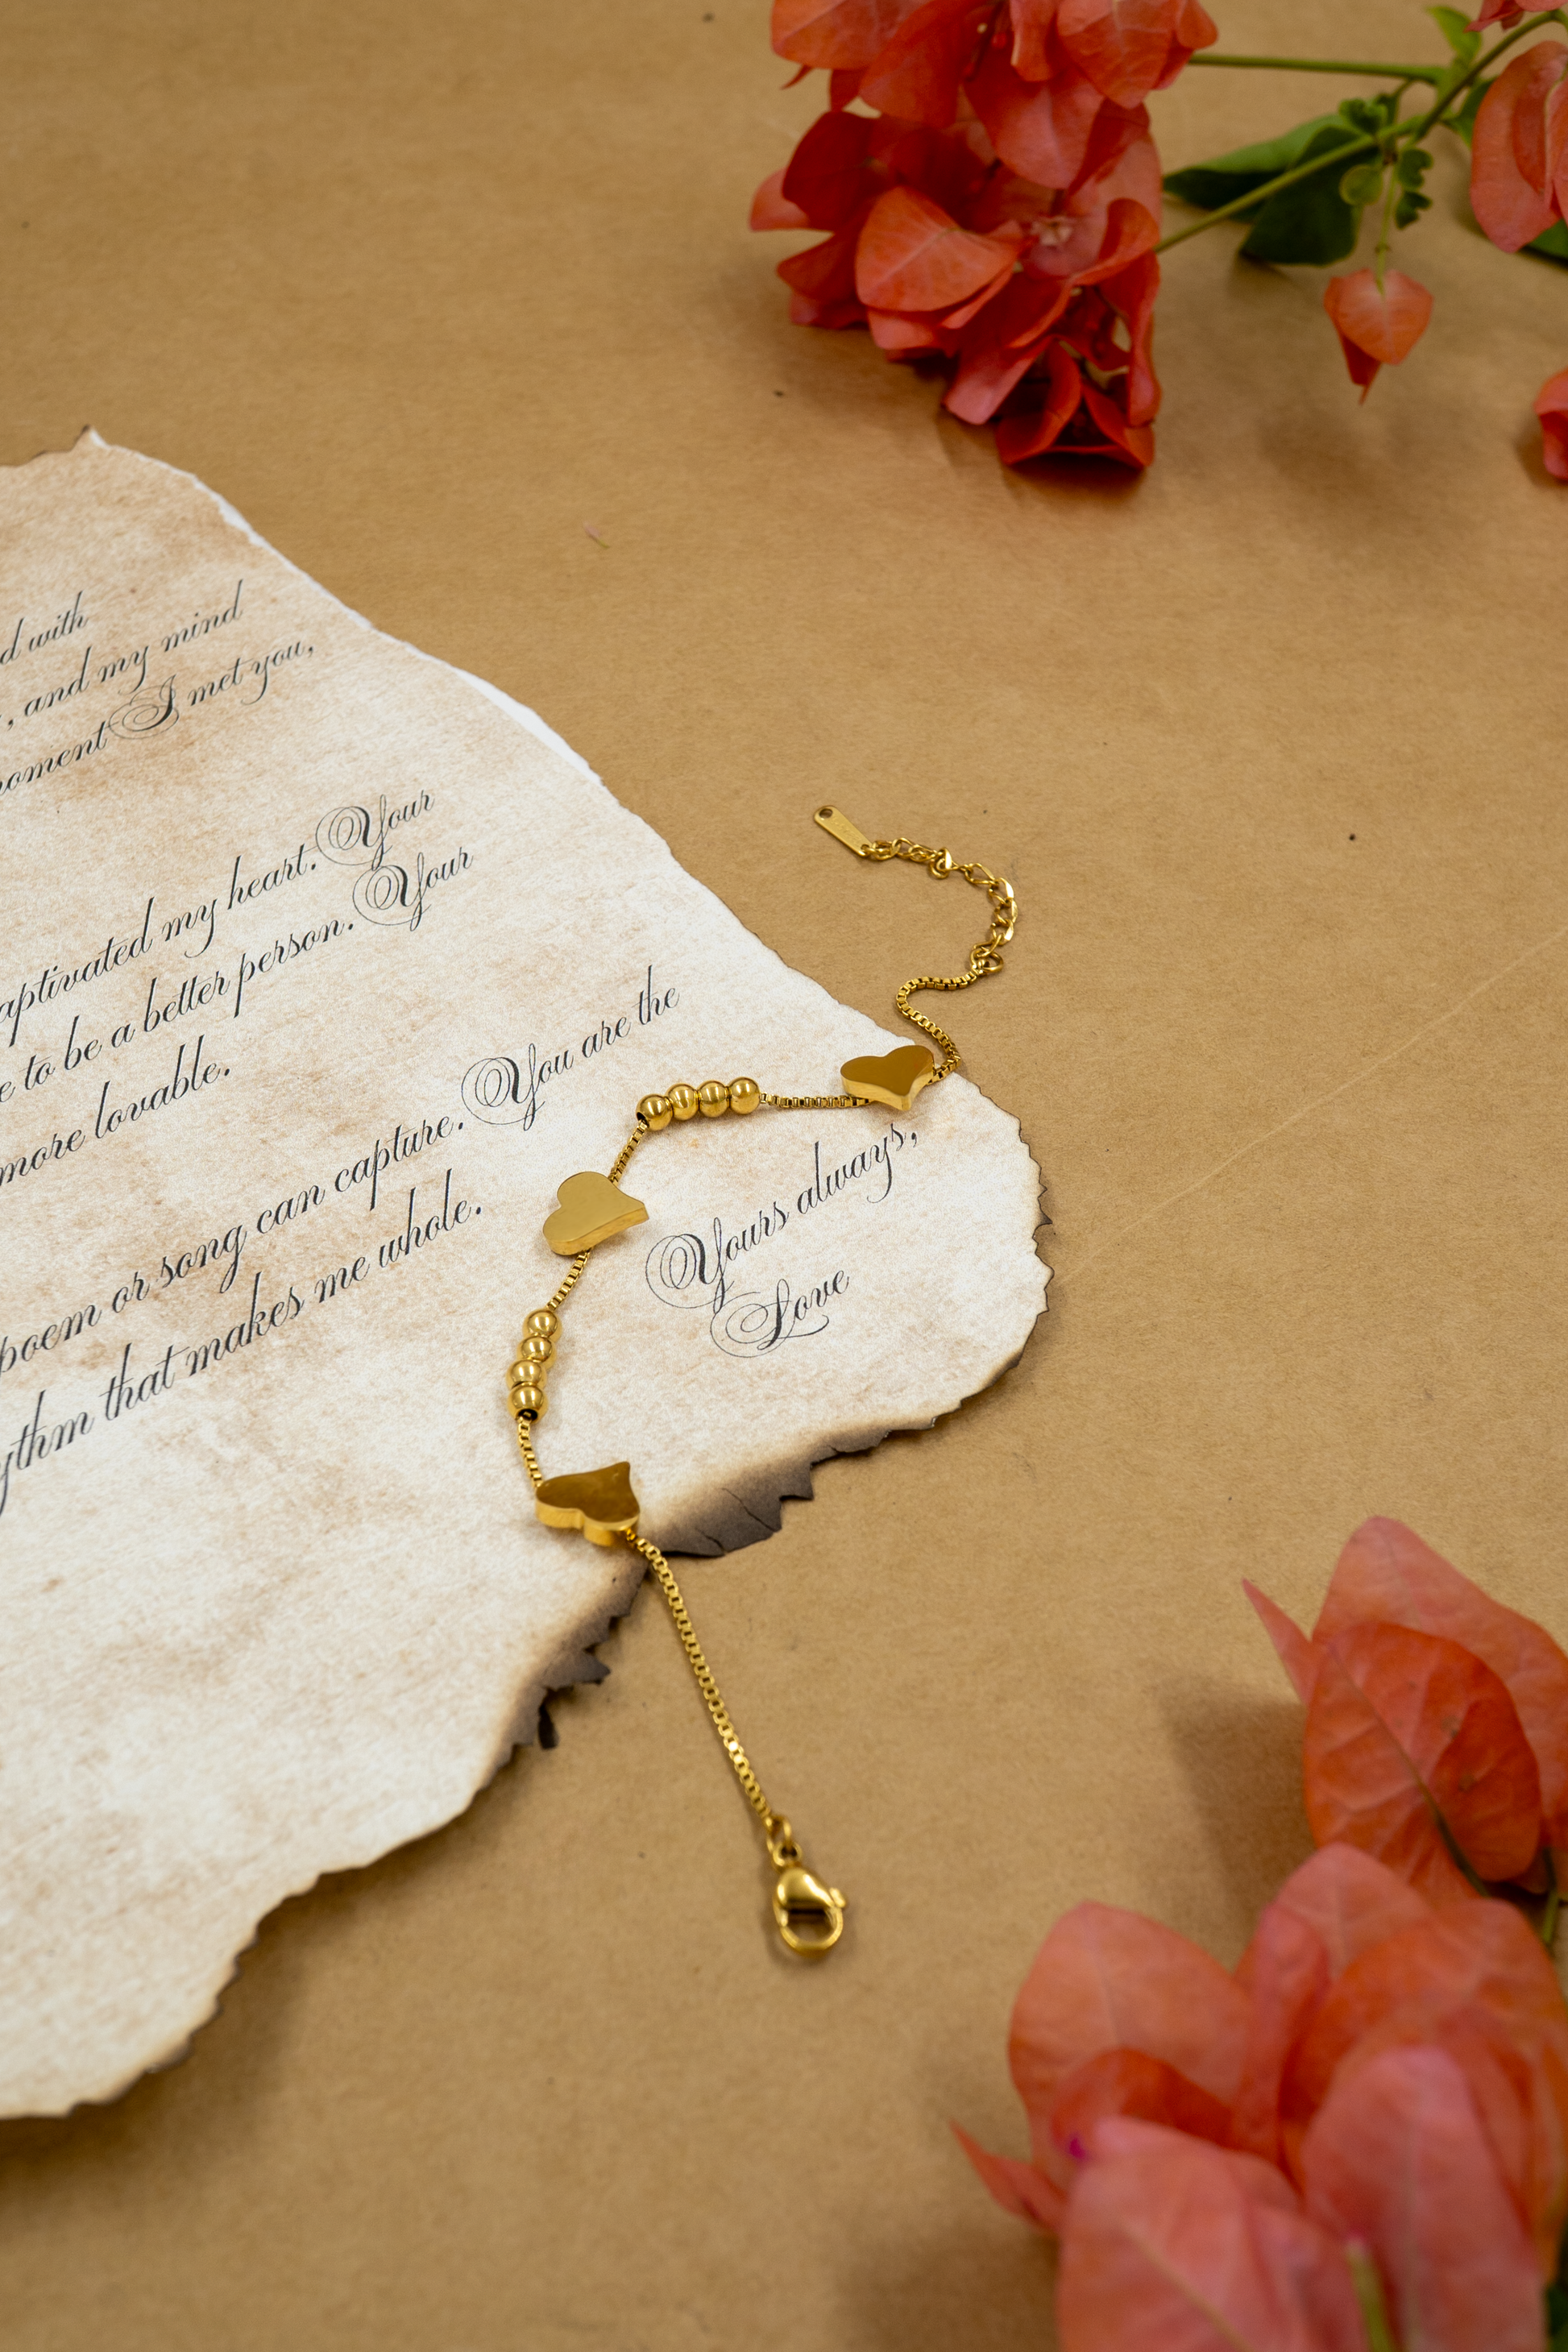 d with
, and my mind
moment I met you,
aptivated my heart. Your
e to be a better person. Your
more lovable.
poem or song can capture. You are the
ythm that makes me whole.
Yours always,
Love